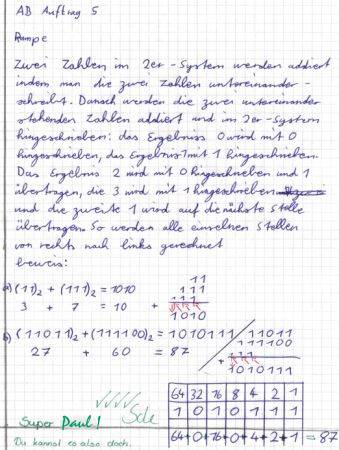 AB Auftrag 5
Rampe
Zwei Zahlen im 2er-System werden addiert
indem man die zwei Zahlen untereinander-
schreibt. Danach werden die zwei untereinander
stehenden Zahlen addiert und im 2er-System
hingeschrieben: das Ergebniss 0 wird mit 0
hingeschrieben, das Ergebnis 1 mit 1 hingeschrieben.
Das Ergebnis 2 wird mit 0 hingeschrieben und 1
übertragen, die 3 wird mit 1 hingeschrieben
und die zweite 1 wird auf die nächste Stelle
übertragen. So werden alle einzelnen Stellen
von rechts nach links gerechnet
beweis:
11
a) (11)₂ + (111)₂ = 1010 111
3 + 7 = 10 + 111
1010
b) (11011)₂ + (111100)₂ = 1010111 11011
27 + 60 = 87 111100
+ 111
1010111
64 32 16 8 4 2 1
1 0 1 0 1 1 1
64+0+16+0+4+2+1 = 87
Super Paul!
Du kannst es also doch.